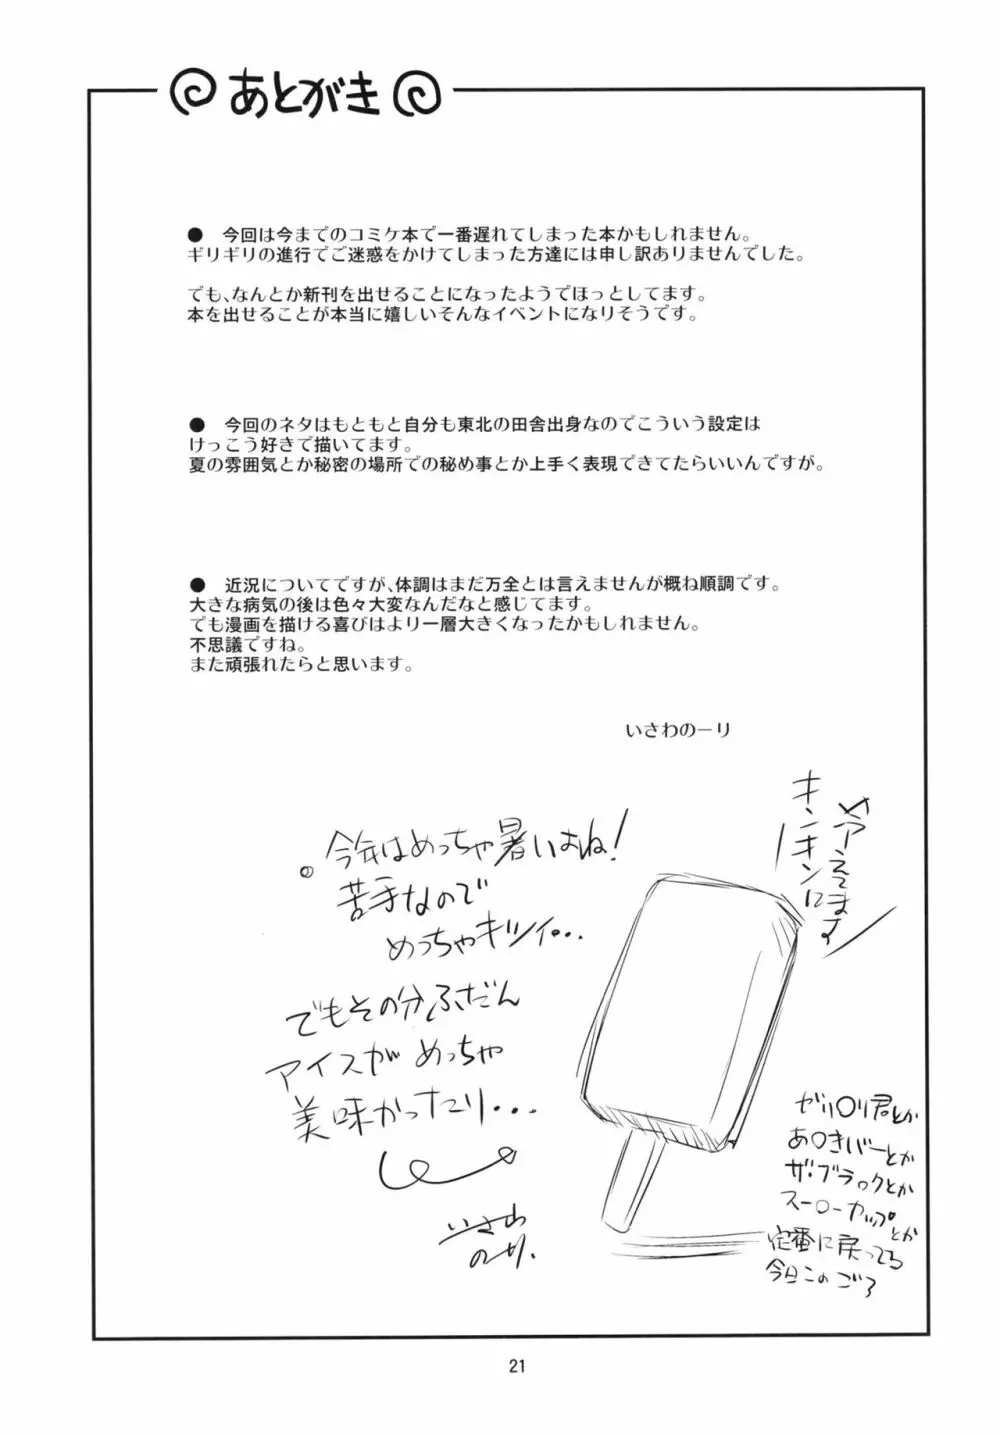 あとがき
● 今回は今までのコミケ本で一番遅れてしまった本かもしれません。
ギリギリの進行でご迷惑をかけてしまった方達には申し訳ありませんでした。
でも、なんとか新刊を出せることになったようでほっとしてます。
本を出せることが本当に嬉しいそんなイベントになりそうです。
● 今回のネタはもともと自分も東北の田舎出身なのでこういう設定は
けっこう好きで描いてます。
夏の雰囲気とか秘密の場所での秘め事とか上手く表現できてたらいいんですが。
● 近況についてですが、体調はまだ万全とは言えませんが概ね順調です。
大きな病気の後は色々大変なんだなと感じてます。
でも漫画を描ける喜びはより一層大きくなったかもしれません。
不思議ですね。
また頑張れたらと思います。
いさわのーり
。今年はめっちゃ暑いよね!
苦手なので
めっちゃキツイ...
でもその分ふだん
アイスがめっちゃ
美味かったり...
いさわ
のーり.
キンキンに
ひえてます
ガリ〇リ君とか
あ〇きバーとか
ザ・ブラックとか
スー〇ーカップとか
定番に戻ってる
今日このごろ
21